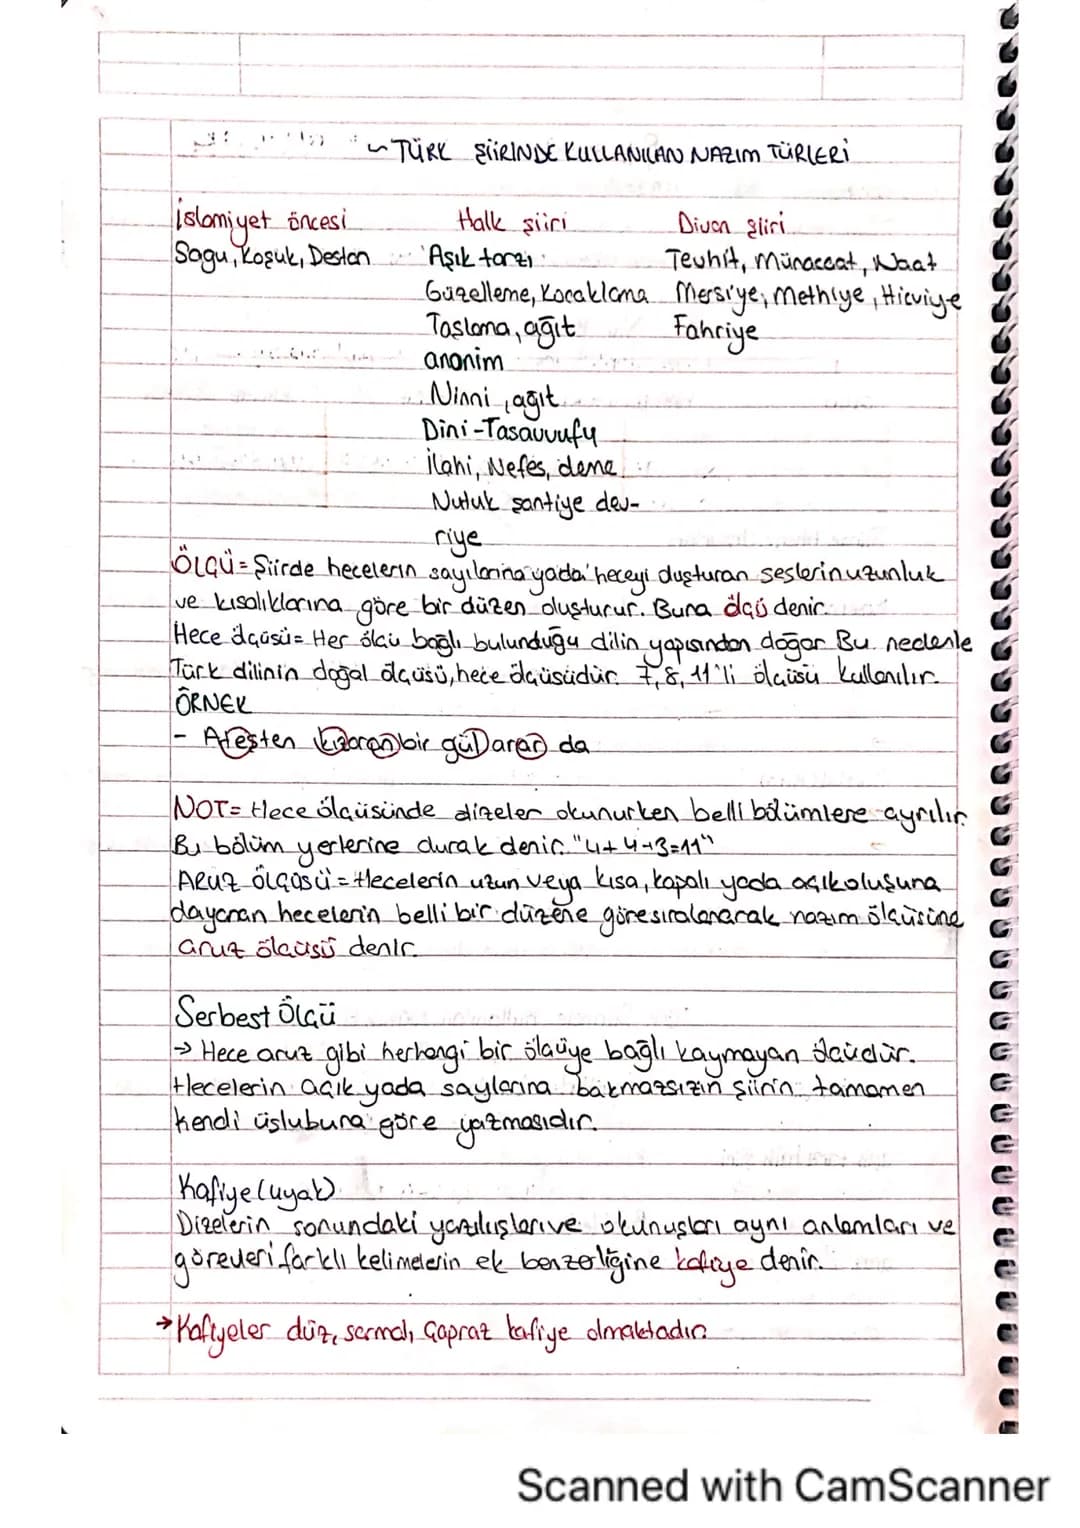 ~ TÜRK ŞİİRİNDE KULLANILAN NAZIM TÜRLERİ
İslamiyet öncesi Halk şiiri Divan şiiri
Sagu, Koşuk, Destan Aşık tarzı Tevhit, Münacaat, Naat
Güzelleme, Kocaklama Mersiye, Methiye, Hicviye
Taşlama, ağıt Fahriye
anonim
Ninni, ağıt
Dini-Tasavvufy
İlahi, Nefes, deme
Nutuk şantiye dev-
riye
ÖLÇÜ = Şiirde hecelerin sayılarına yada heceyi oluşturan seslerin uzunluk
ve kısalıklarına göre bir düzen oluşturur. Buna ölçü denir.
Hece ölçüsü = Her ölçü bağlı bulunduğu dilin yapısından doğar Bu nedenle
Türk dilinin doğal ölçüsü, hece ölçüsüdür. 7, 8, 11'li ölçüsü kullanılır.
ÖRNEK
- Ateşten kızaran bir gül arar da
NOT = Hece ölçüsünde dizeler okunurken belli bölümlere ayrılır
Bu bölüm yerlerine durak denir. "4+4+3=11"
ARUZ ÖLÇÜSÜ = Hecelerin uzun veya kısa, kapalı yada açık oluşuna
dayanan hecelerin belli bir düzene göre sıralanarak nazım ölçüsüne
aruz ölçüsü denir.
Serbest Ölçü
→ Hece aruz gibi herhangi bir ölçüye bağlı kaymayan ölçüdür.
Hecelerin açık yada saylarına bakmazsızın şiirin tamamen
kendi üslubuna göre yazmasıdır.
Kafiye (uyak)
Dizelerin sonundaki yazılışları ve okunuşları aynı anlamları ve
görevleri farklı kelimelerin ek benzerliğine kafiye denir.
→ Kafiyeler düz, sarmalı, çapraz kafiye olmaktadır.
Scanned with CamScanner